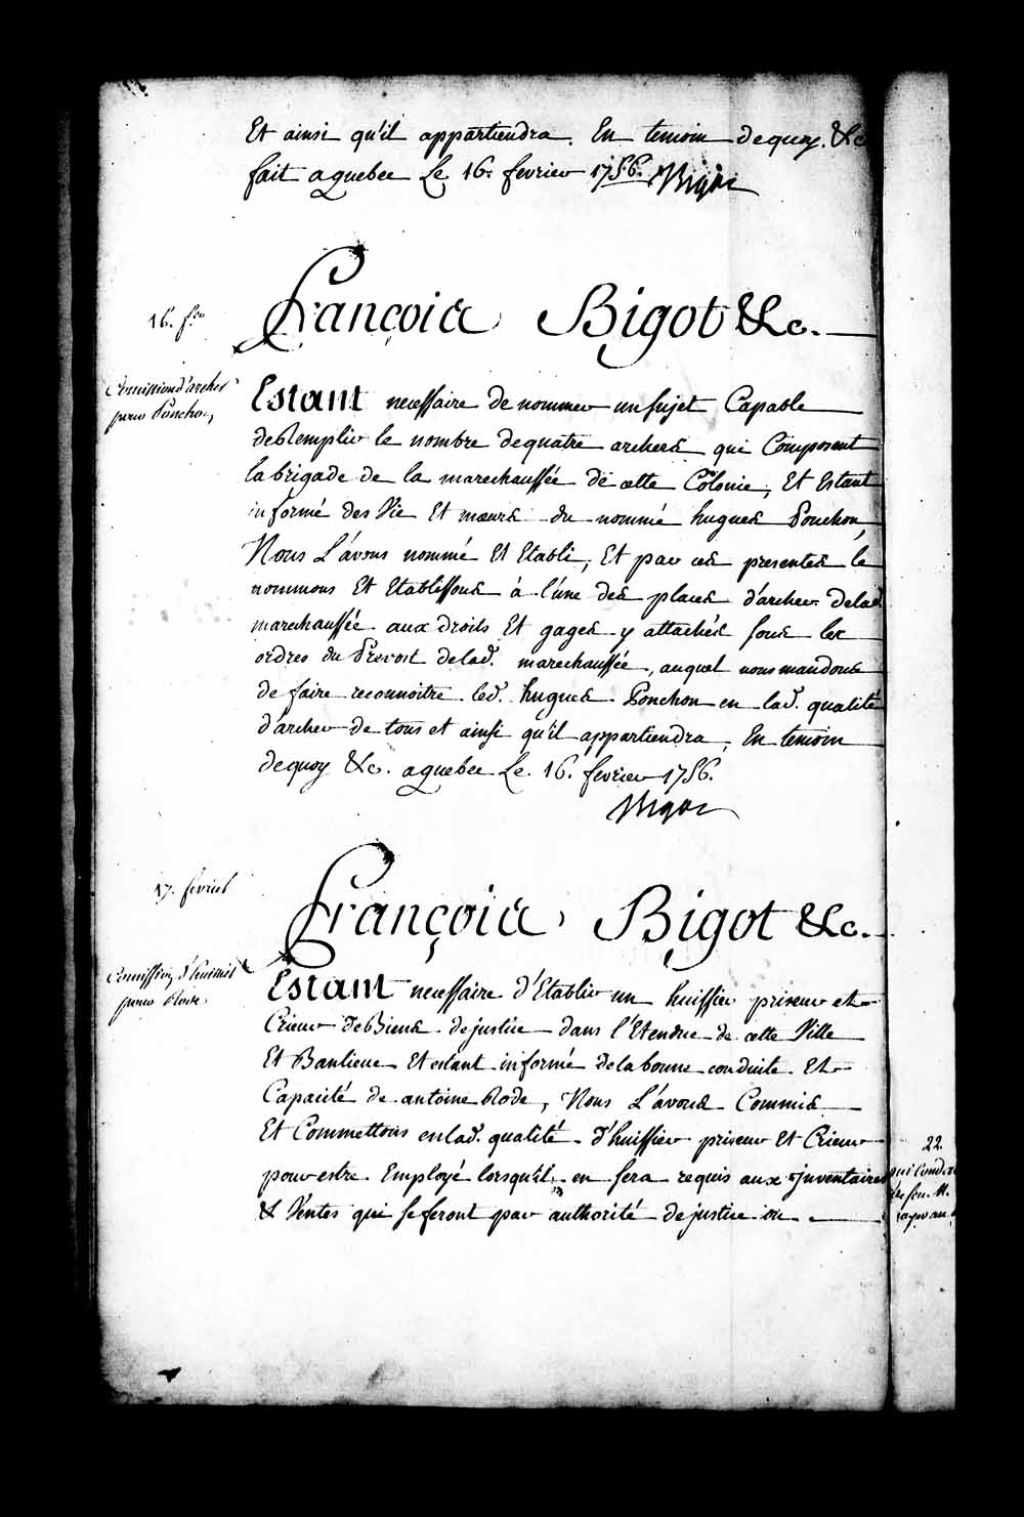 Et ainsi qu'il appartiendra. En temoin dequoy. &c
fait aquebec Le 16. fevrier 1756. Bigot
16. fer
François Bigot &c.
Comission d'archer
pour Ponchon
Estant necessaire de nommer un sujet Capable
de Remplir le nombre de quatre archers qui Composent
la brigade de la marechaussée de cette Colonie, Et Estant
informé des Vie Et mœurs du nommé hugues Ponchon,
Nous L'ávons nommé Et Etabli, Et par ces presentes le
nommons Et Etablissons à l'une des places d'archer delad
marechaussée aux droits Et gages y attachés sous les
ordres du Prevost delad. marechaussée, auquel nous mandons
de faire reconnoitre led. hugues Ponchon en lad. qualité
d'archer de tous et ainsi qu'il appartiendra, En temoin
dequoy &c. aquebec Le. 16. fevrier 1756.
Bigot
17. fevrier
François Bigot &c.
Comission d'huissier
pour Rode
Estant necessaire d'Etablir un huissier priseur et
Crieur de Biens de justice dans l'Etendue de cette Ville
Et Banlieue Et estant informé de la bonne conduite Et
Capacité de antoine Rode, Nous L'avons Commis
Et Commettons en lad. qualité d'huissier priseur Et Crieur
pour estre Employé lorsqu'il en sera requis aux jnventaires
& Ventes qui se feront par authorité de justice ou
22.